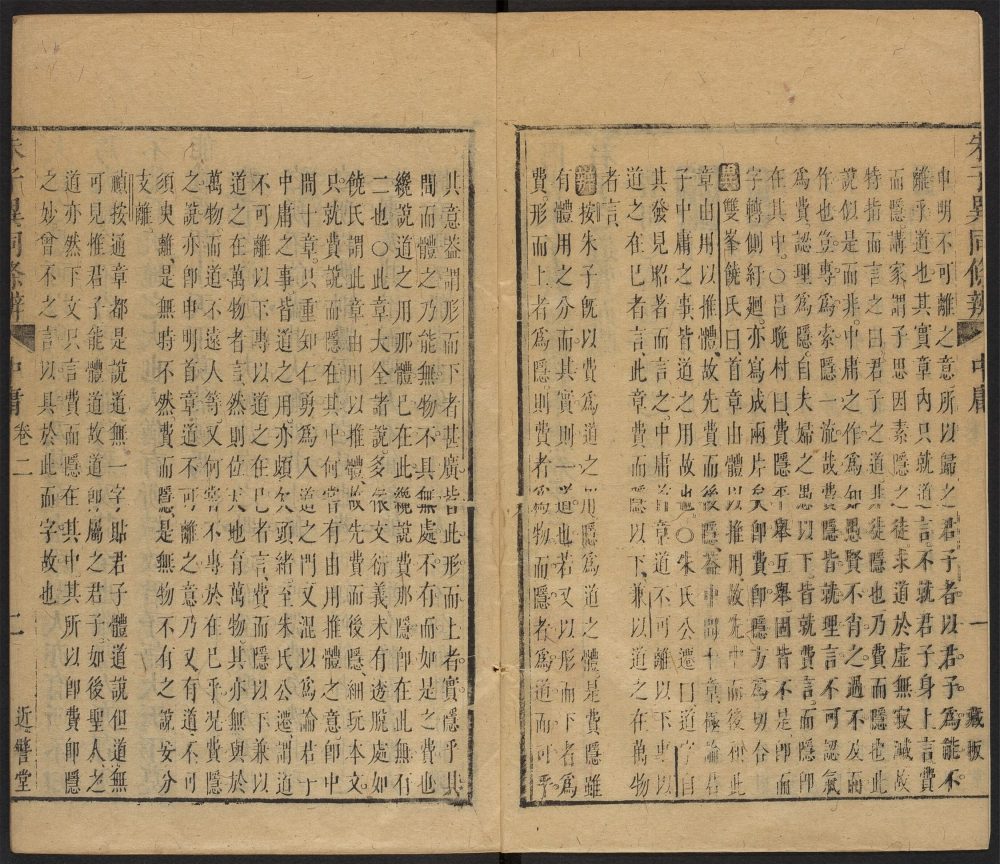 朱子異同條辨 中庸 一 藏板
申明不可離之意所以歸之君子者以君子為能不
離乎道也其實章內只就道言不就君子身上言費
而隱講家謂子思因素隱之徒求道於虛無寂滅故
特指而言之曰君子之道非徒隱也乃費而隱也此
說似是而非中庸之作為知愚賢不肖之過不及而
作也豈專為索隱一流哉費隱皆就理言不可認氣
為費認理為隱自夫婦之愚以下皆就費言而隱即
在其中〇呂晚村曰費隱平舉互舉固皆不是即
字轉側紆廻亦寫成兩片矣即費即隱方為切合
異雙峯饒氏曰首章由體以推用故先中而後和此
章由用以推體故先費而後隱蓋中間十章極論君
子中庸之事皆道之用故也〇朱氏公遷曰道字自
其發見昭著者而言之中庸首章道不可離以下專以
道之在已者言此章費而隱以下兼以道之在萬物
者言
辨按朱子既以費為道之用隱為道之體是費隱雖
有體用之分而其實則一道也若又以形而下者為
費形而上者為隱則費者為物而隱者為道而可乎
其意蓋謂形而下者甚廣皆此形而上者實隱乎其
間而體之乃能無物不具無處不有而如是之費也
纔說道之用那體已在此纔說費那隱即在此無有
二也〇此章大全諸說多依文衍義未有透脫處如
饒氏謂此章由用以推體故先費而後隱細玩本文
只就費說而隱在其中何嘗有由用推體之意即中
間十章只重知仁勇為入道之門又混以為論君子
中庸之事皆道之用亦頗欠頭緒至朱氏公遷謂道
不可離以下專以道之在已者言費而隱以下兼以
道之在萬物者言然則位天地育萬物其亦無與於
萬物而道不遠人等又何嘗不專於在已乎況費隱
之說亦即申明首章道不可離之意乃又有道不可
須臾離是無時不然費而隱是無物不有之說安分
支離
顧按通章都是說道無一字貼君子體道說但道無
可見推君子能體道故道即屬之君子如後聖人之
道亦然下文只言費而隱在其中其所以即費即隱
之妙曾不之言以具於此而字故也
朱子異同條辨 中庸卷二 二 近譬堂